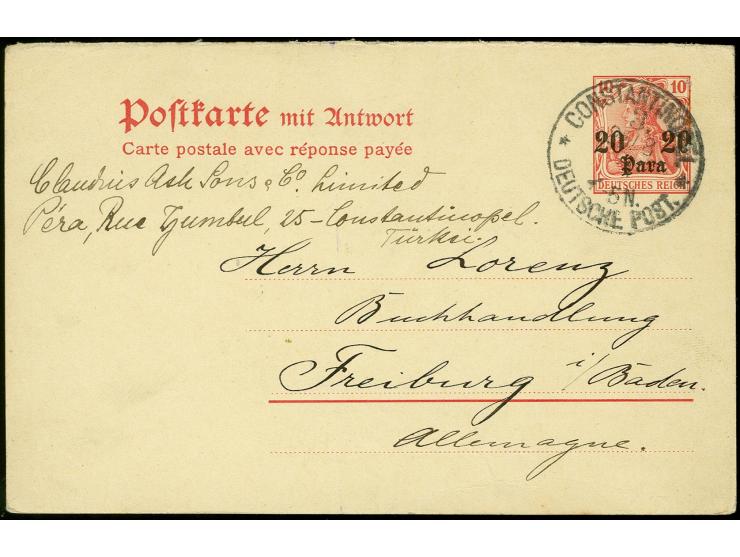 Postkarte mit Antwort
Carte postale avec réponse payée
10 10
20 20
Para
DEUTSCHES REICH
* CONSTANTINOPEL *
DEUTSCHE POST.
Claudius Ash Sons & Co. Limited
Péra, Rue Tjumbul, 25 - Constantinopel.
Türkei.
Herrn Lorenz
Buchhandlung
Freiburg i/Baden.
Allemagne.